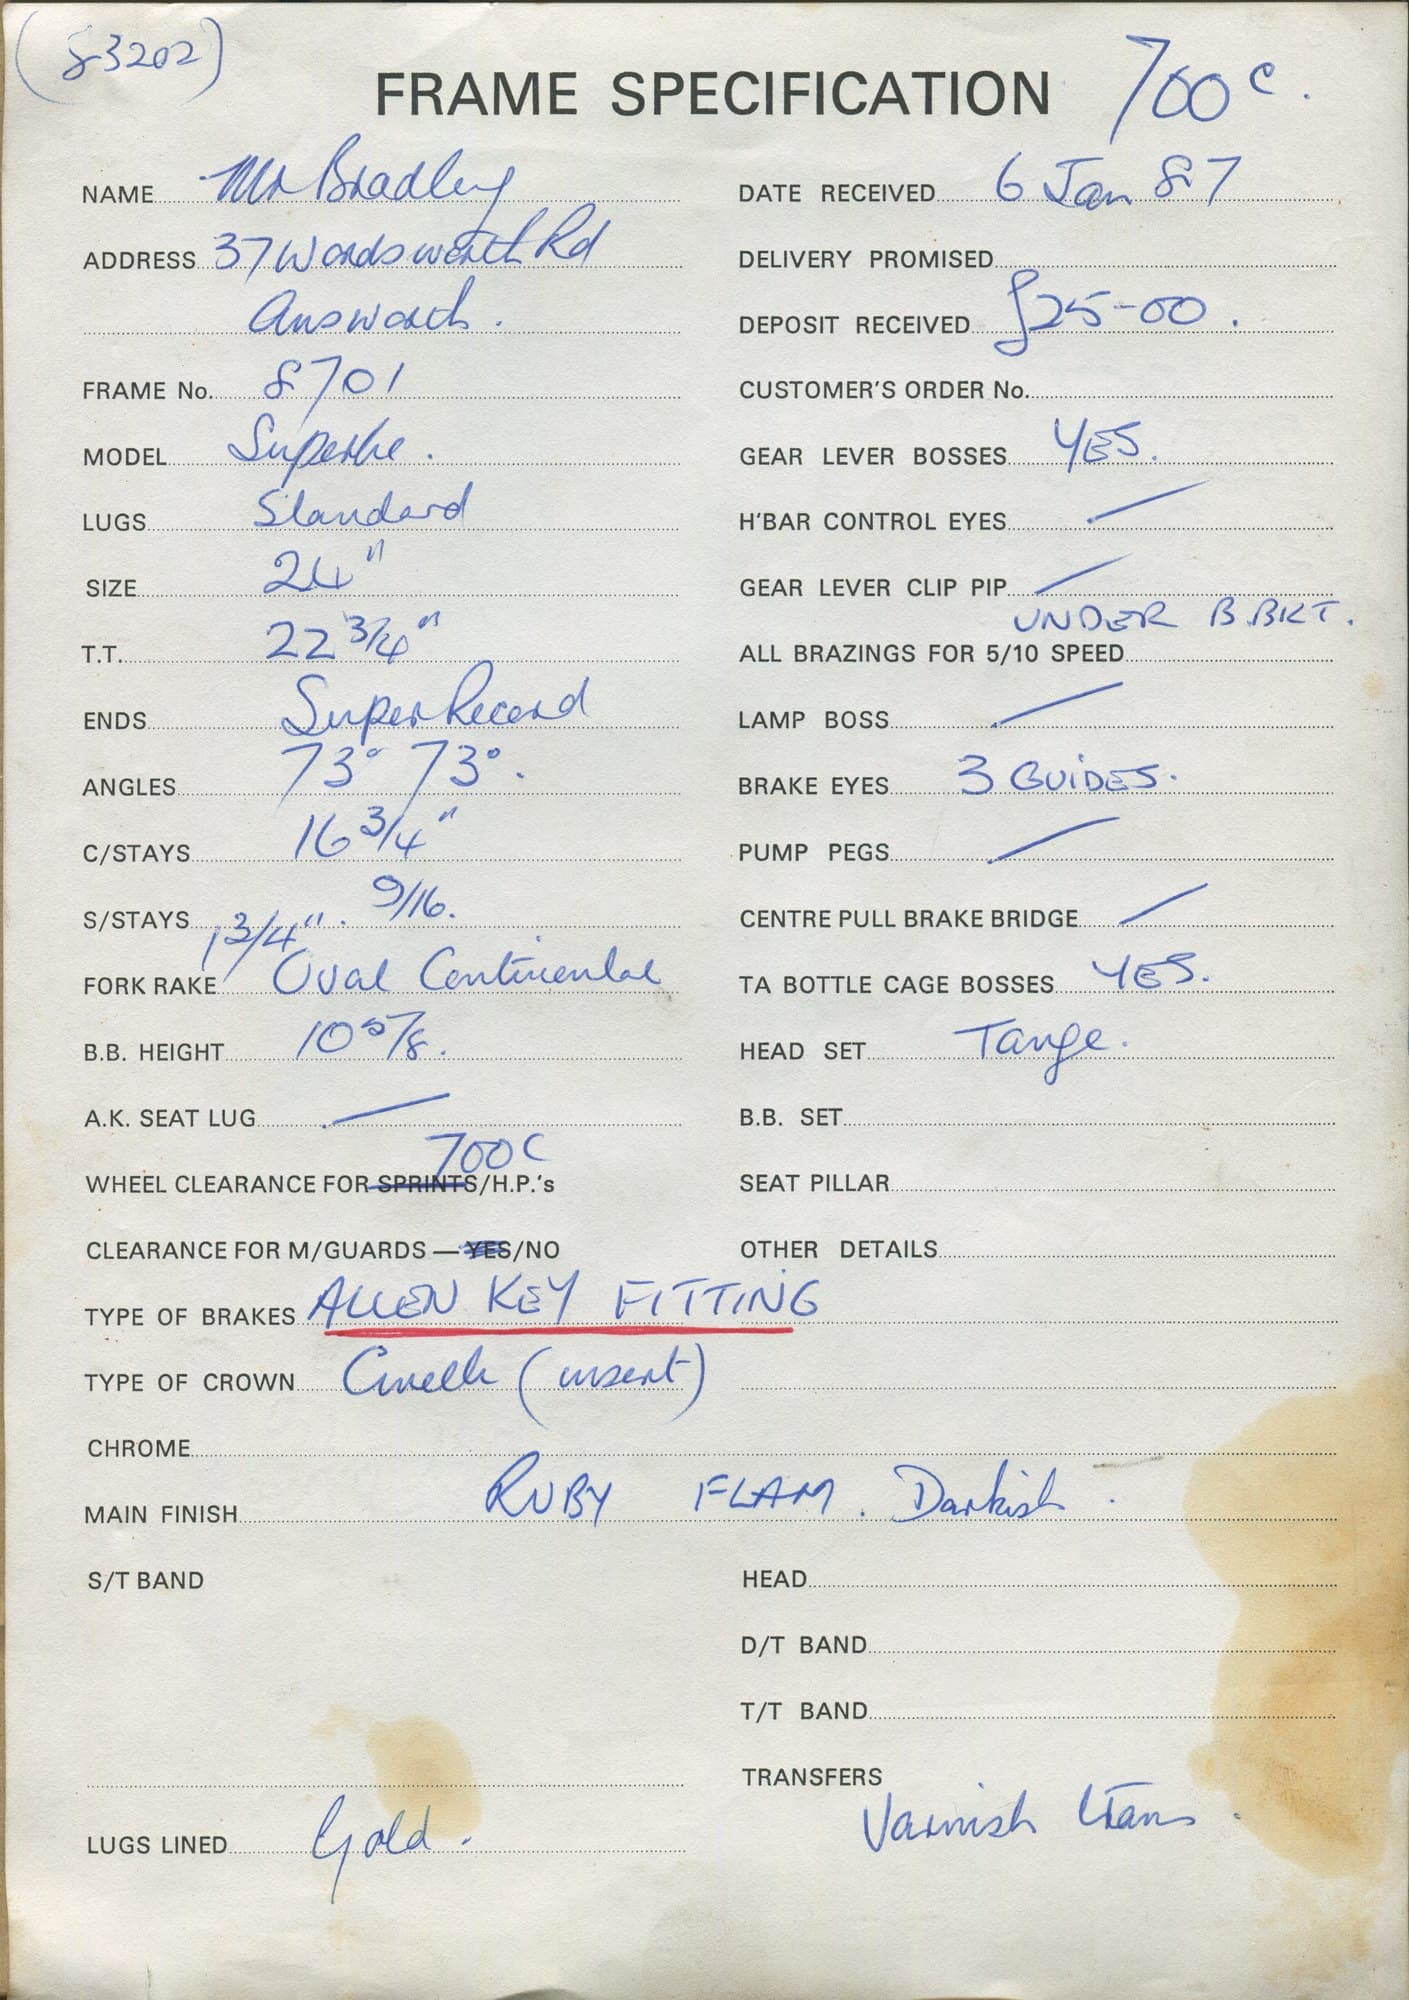 (83202)
FRAME SPECIFICATION 700c.
NAME Mr Bradley
ADDRESS 37 Wordsworth Rd
Answorth.
FRAME No. 8701
MODEL Superbe.
LUGS Standard
SIZE 24"
T.T. 22 3/4"
ENDS Super Record
ANGLES 73° 73°.
C/STAYS 16 3/4"
S/STAYS 9/16.
FORK RAKE 1 3/4". Oval Continental
B.B. HEIGHT 10 5/8.
A.K. SEAT LUG
700C
WHEEL CLEARANCE FOR SPRINTS/H.P.'s
CLEARANCE FOR M/GUARDS — YES/NO
DATE RECEIVED 6 Jan 87
DELIVERY PROMISED
DEPOSIT RECEIVED £25-00.
CUSTOMER'S ORDER No.
GEAR LEVER BOSSES YES.
H'BAR CONTROL EYES
GEAR LEVER CLIP PIP
UNDER B.BKT.
ALL BRAZINGS FOR 5/10 SPEED
LAMP BOSS
BRAKE EYES 3 GUIDES.
PUMP PEGS
CENTRE PULL BRAKE BRIDGE
TA BOTTLE CAGE BOSSES YES.
HEAD SET Tange.
B.B. SET
SEAT PILLAR
OTHER DETAILS
TYPE OF BRAKES ALLEN KEY FITTING
TYPE OF CROWN Cinelli (insert)
CHROME
MAIN FINISH RUBY FLAM. Darkish.
S/T BAND
LUGS LINED Gold.
HEAD
D/T BAND
T/T BAND
TRANSFERS
Varnish trans.